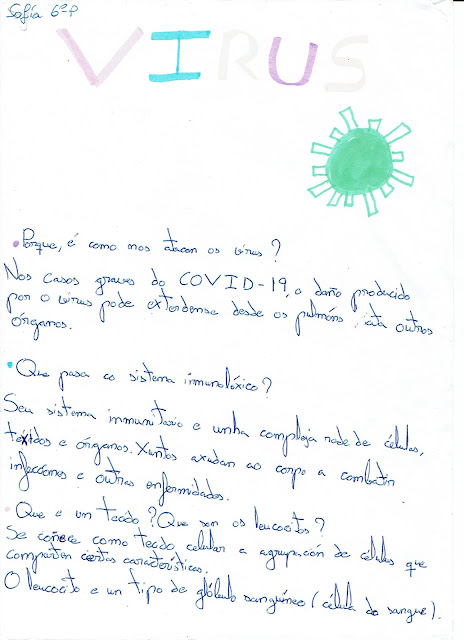 Sofía 6ºP
VIRUS
• Porque, é como nos atacan os virus?
Nos casos graves do COVID-19, o daño producido
por o virus pode extenderse desde os pulmóns ata outros
órganos.
• Que pasa co sistema inmunolóxico?
Seu sistema inmunitario e unha complexa rede de células,
texidos e órganos. Xuntos axudan ao corpo a combatir
infeccions e outras enfermidades.
• Que e un tecido? Que son os leucocitos?
Se coñece como tecido celular a agrupación de células que
comparten certas características.
O leucocito e un tipo de glóbulo sanguíneo (célula do sangue).